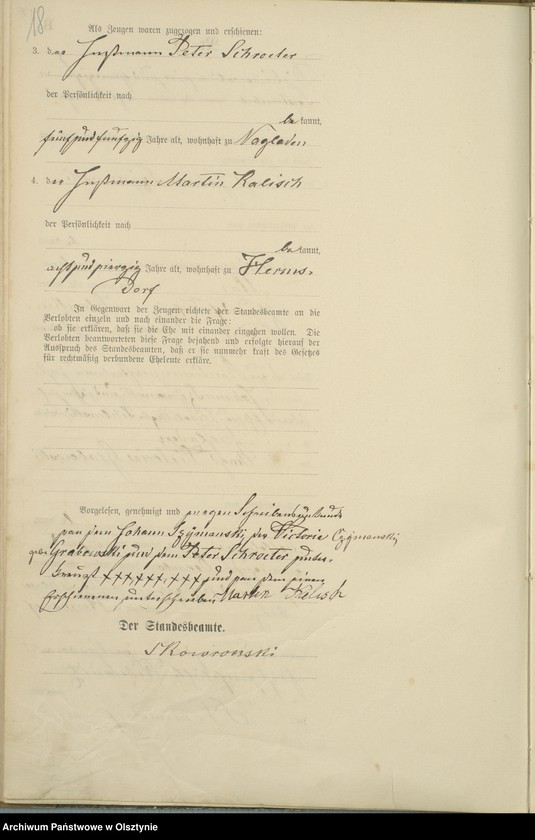 18
Als Zeugen waren zugezogen und erschienen:
3. der Peter Schroeter
der Persönlichkeit nach
be kannt,
fünfundfunfzig Jahre alt, wohnhaft zu Nagladen
4. der Martin Kalisch
der Persönlichkeit nach
be kannt,
achtundvierzig Jahre alt, wohnhaft zu Herms-
dorf
In Gegenwart der Zeugen richtete der Standesbeamte an die
Verlobten einzeln und nach einander die Frage:
ob sie erklären, daß sie die Ehe mit einander eingehen wollen. Die
Verlobten beantworteten diese Frage bejahend und erfolgte hierauf der
Ausspruch des Standesbeamten, daß er sie nunmehr kraft des Gesetzes
für rechtmäßig verbundene Eheleute erkläre.
Vorgelesen, genehmigt und wegen Schreibensunkunde
von dem Johann der Victoria
geb. Grabowski und dem Peter Schroeter unter-
kreuzt +++++++ +++ und von dem einen
Erschienenen unterschrieben Martin Kalisch
Der Standesbeamte.
Skowronski
Archiwum Państwowe w Olsztynie